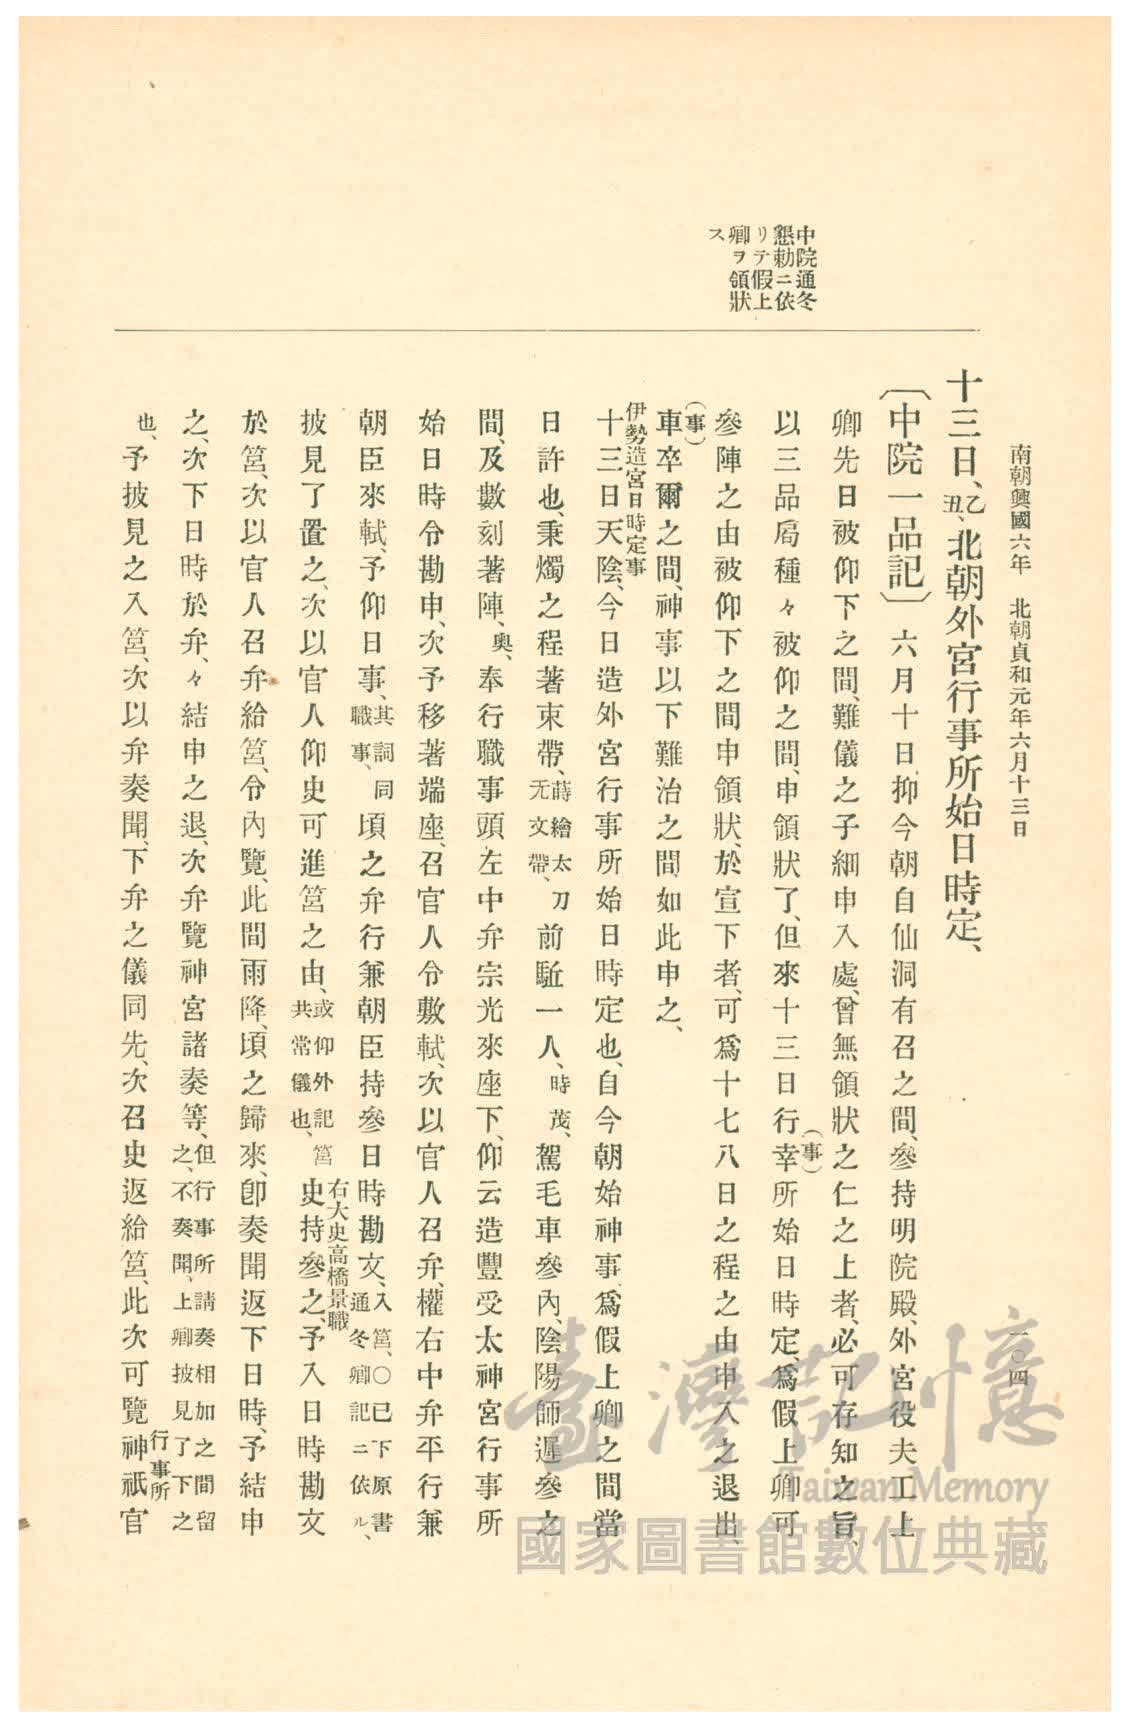 南朝興國六年　北朝貞和元年六月十三日
一〇四
中院通冬
懇勅ニ依
リテ假上
卿ヲ領狀
ス
十三日、乙丑、北朝外宮行事所始日時定、
〔中院一品記〕六月十日、抑今朝自仙洞有召之間、參持明院殿、外宮役夫工上
卿先日被仰下之間、難儀之子細申入處、曾無領狀之仁之上者、必可存知之旨、
以三品局種々被仰之間、申領狀了、但來十三日行幸(事)所始日時定、爲假上卿可
參陣之由被仰下之間申領狀、於宣下者、可爲十七八日之程之由申入之退出、
車(事)卒爾之間、神事以下難治之間、如此申之、
伊勢造宮日時定事
十三日天陰、今日造外宮行事所始日時定也、自今朝始神事、爲假上卿之間當
日許也、秉燭之程著束帶、蒔繪太刀无文帶、前駈一人、時茂、駕毛車參內、陰陽師遲參之
間、及數刻著陣、奥、奉行職事頭左中弁宗光來座下、仰云造豐受太神宮行事所
始日時令勘申、次予移著端座、召官人令敷軾、次以官人召弁、權右中弁平行兼
朝臣來軾、予仰日事、其詞同職事、頃之弁行兼朝臣持參日時勘文、入筥、〇已下原書通冬卿記ニ依ル、
披見了置之、次以官人仰史可進筥之由、或仰外記筥共常儀也、史右大史高橋景職持參之、予入日時勘文
於筥、次以官人召弁給筥、令內覽、此間雨降、頃之歸來、卽奏聞返下日時、予結申
之、次下日時於弁、々結申之退、次弁覽神宮諸奏等、但行事所請奏相加之間留之、不奏聞、上卿披見了下之
也、予披見之入筥、次以弁奏聞、下弁之儀同先、次召史返給筥、此次可覽神祇官行事所
臺灣記憶
Taiwan Memory
國家圖書館數位典藏